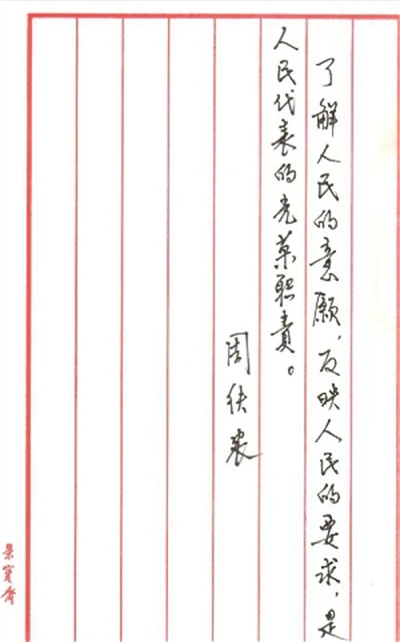 了解人民的意愿，反映人民的要求，是
人民代表的光荣职责。
周铁农
榮寶齋